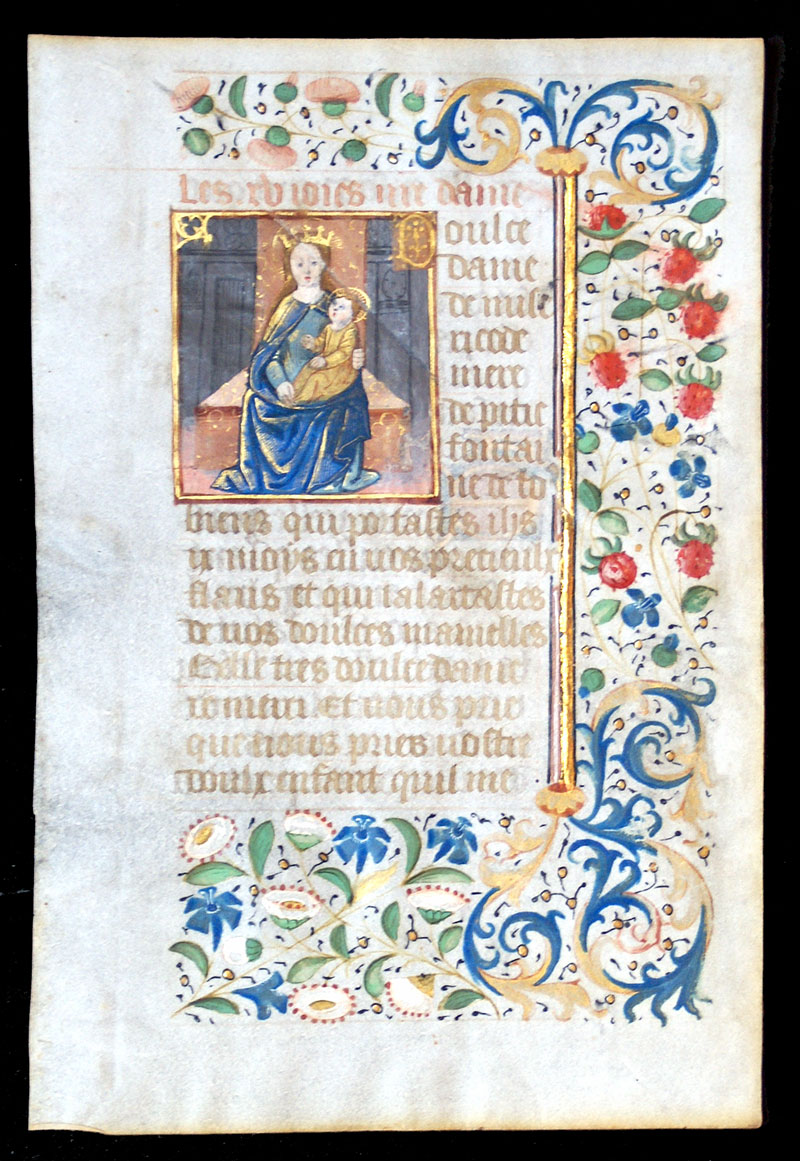 Les xv ioies nre dame
Doulce
dame
de mise
ricorde
mere
de pitie
fontai
ne de to9
biens qui portastes ihs
ix moys en vos precieulx
flans et qui lalaitastes
de vos doulces mamelles
Belle tres doulce dame
ie merci et vous prie
que vous pries vostre
doulx enfant quil me